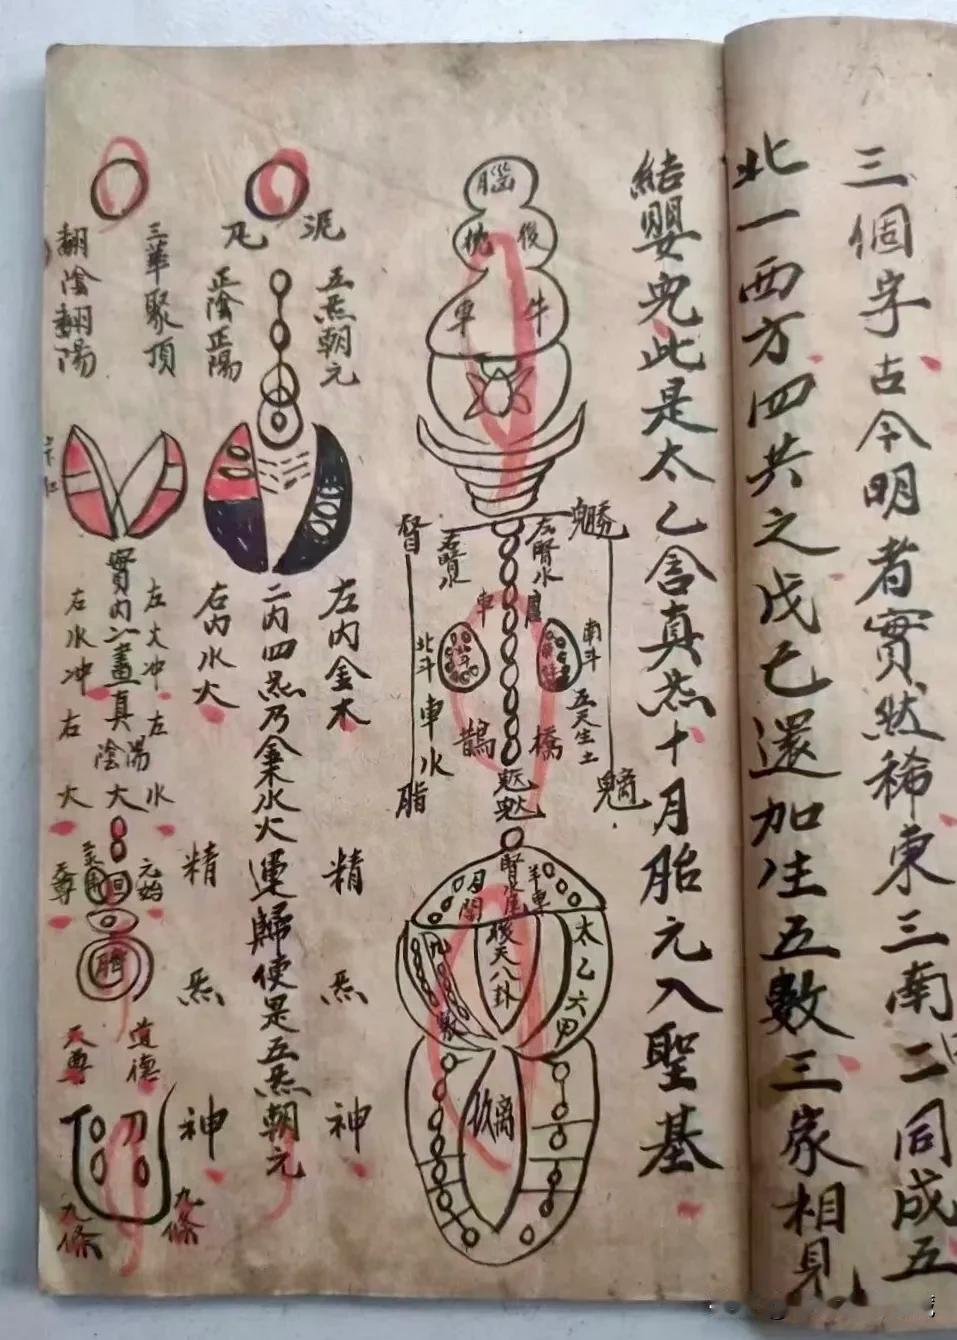 三個字古今明者實然稀東三南二同成五
北一西方四共之戊己還加生五數三家相見
結嬰兒此是太乙含真炁十月胎元入聖基
腦
後
枕
牛
車
督
魑
左腎水
右腎水
車
南斗
北斗
五天生土
車水
鵲
橋
脂
魈
羊車
腎水尾
月
太乙六甲
後天八卦
九
數
泥
丸
五炁朝元
正陰正陽
左內金木
二內四炁乃金木水火運歸使是五炁朝元
右內水火
精
炁
神
精
炁
神
三華聚頂
翻陰翻陽
左火冲
右水冲
實內
畫真
陰陽
左水
右火
大
元始
天尊
臍
道德
天尊
刀
九條
九條